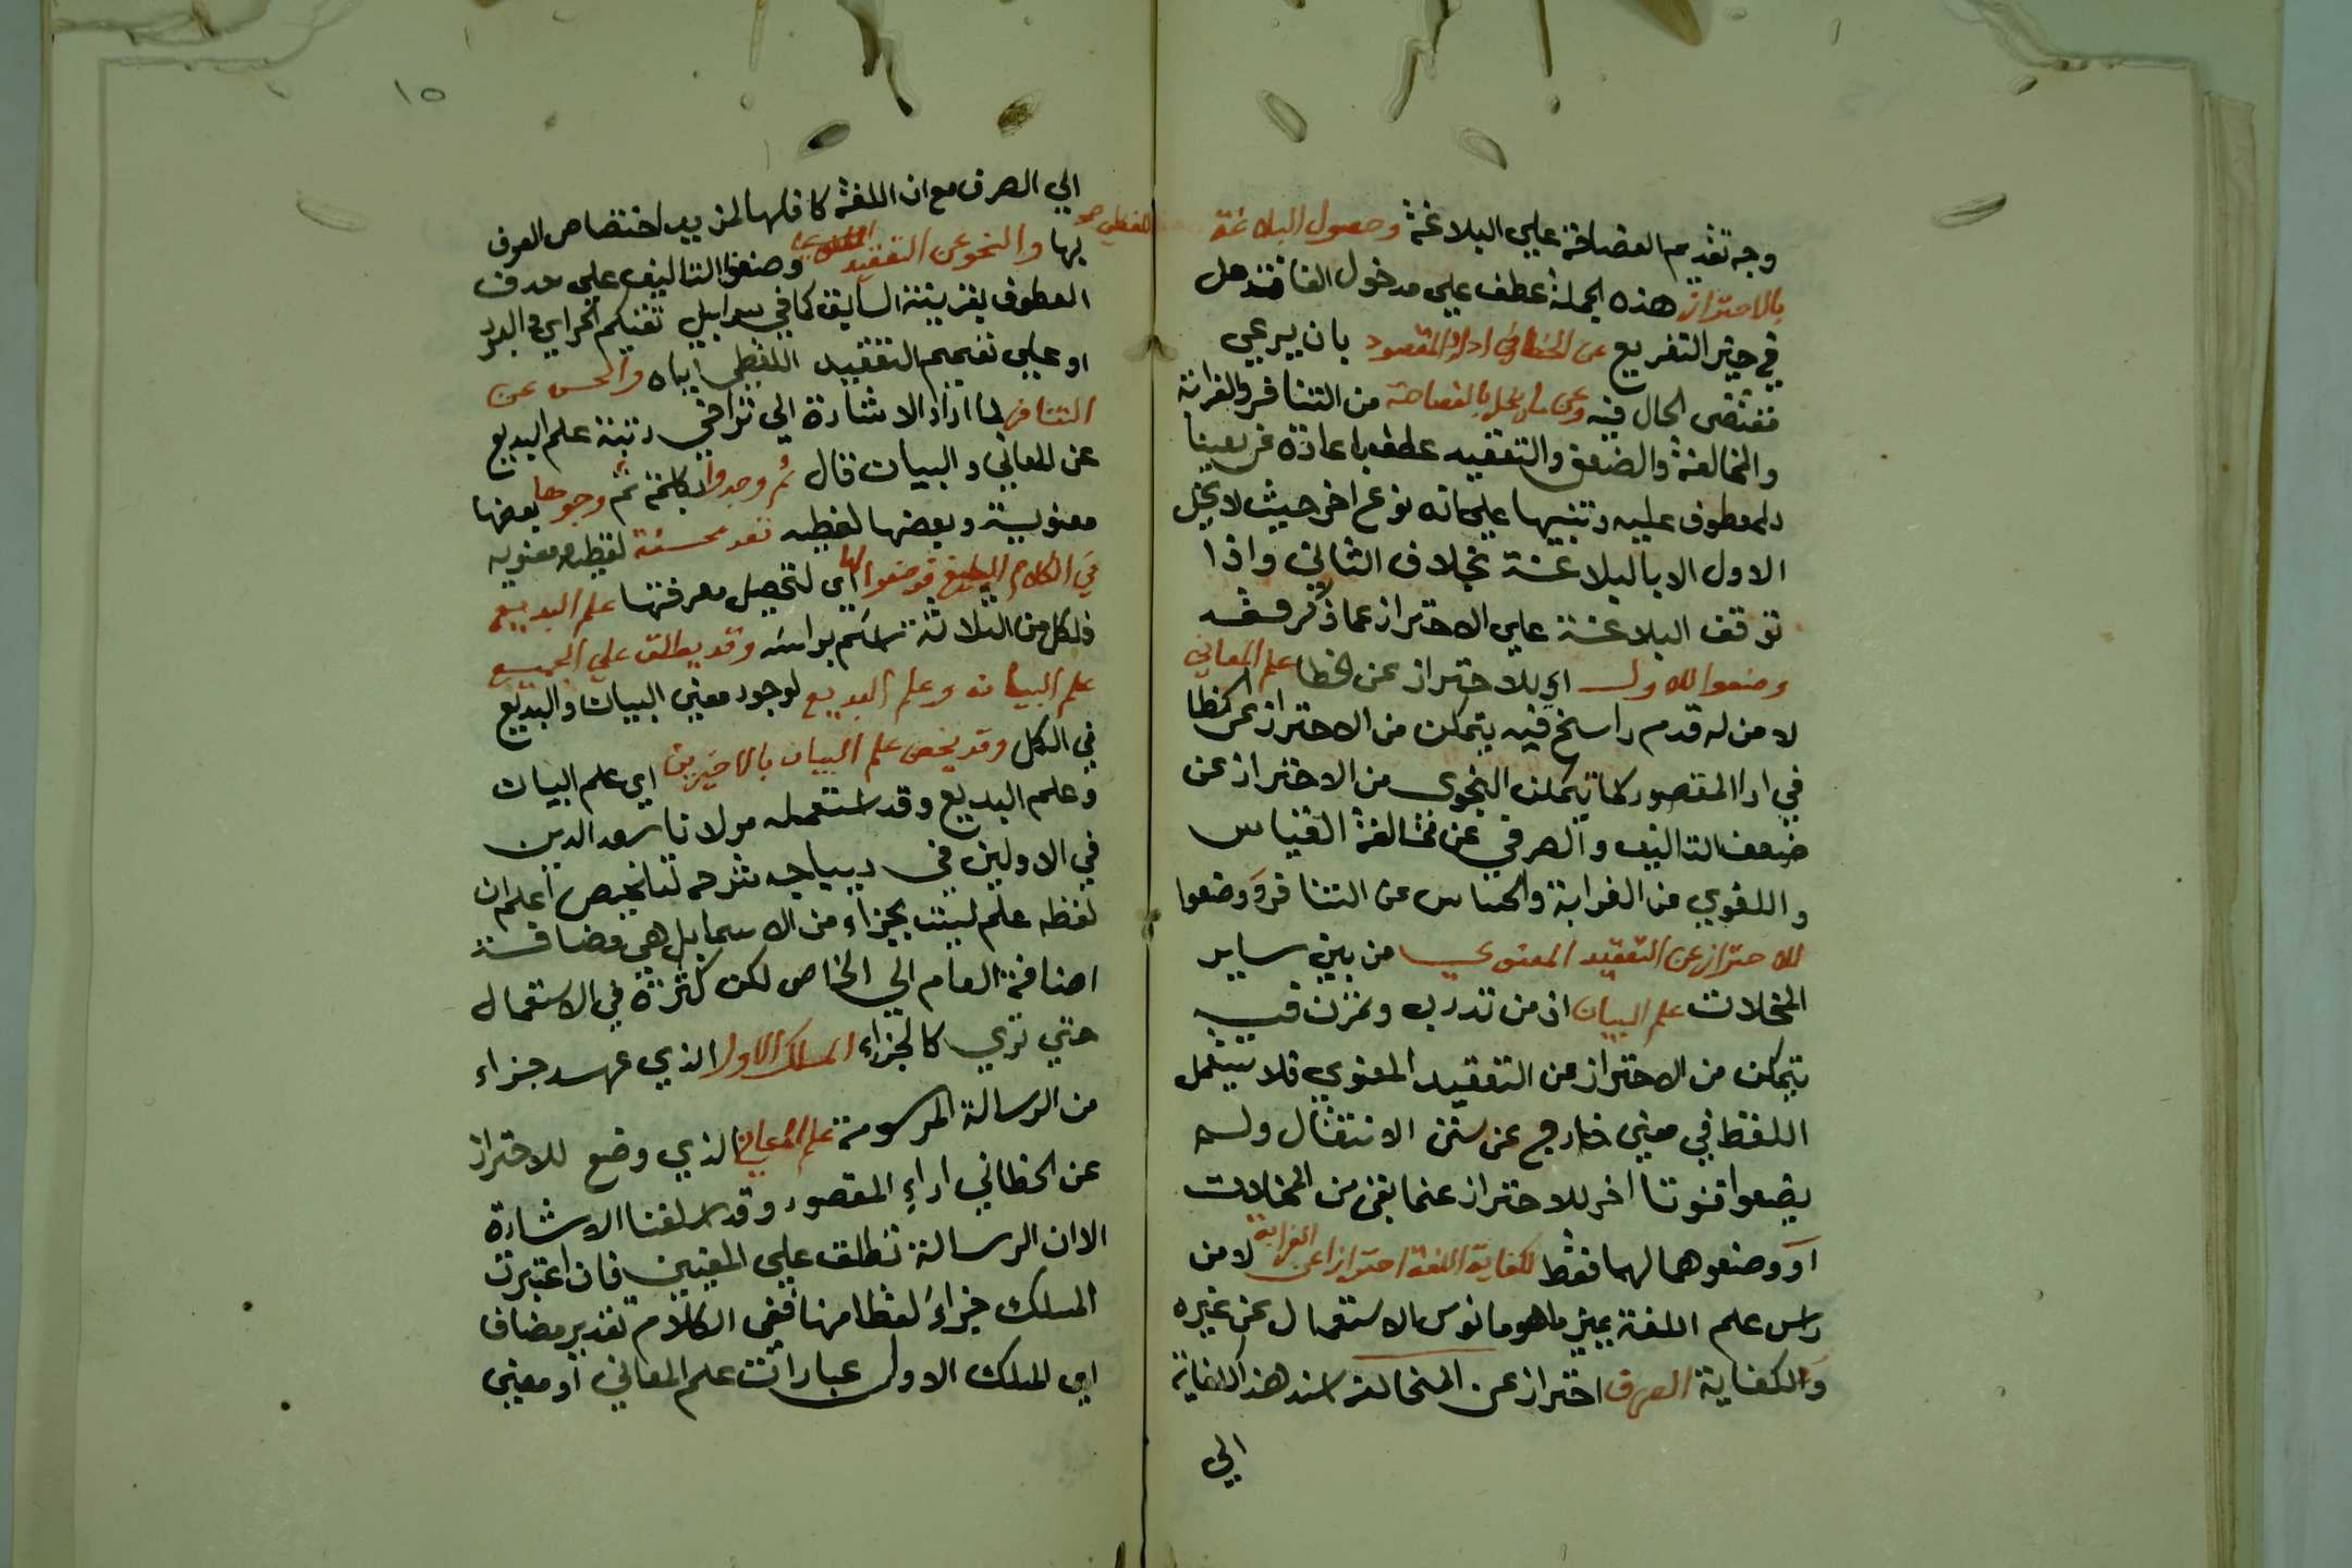 وجه تقديم الفصاحة علي البلاغة وحصول البلاغة
بالاحتراز هذه الجملة عطف علي مدخول الفا فتدخل
في حيز التفريع عن الخطا في اداء المقصود بان يرعي
مقتضى الحال فيه وعن ما يخل بالفصاحة من التنافر والغرابة
والمخالفة والضعف والتعقيد عطف باعادة عن
المعطوف عليه وتنبيها علي انه نوع اخر حيث لا يخل
الاول الا بالبلاغة بخلاف الثاني واذا
توقف البلاغة علي الاحتراز عما ذكر فقد
وضعوا للاول اي للاحتراز عن الخطا علم المعاني
لا من له قدم راسخ فيه يتمكن من الاحتراز عن الخطا
في ادا المقصود كما يتمكن النحوي من الاحتراز عن
ضعف التاليف والصرفي عن مخالفة القياس
واللغوي عن الغرابة والحساس عن التنافر ووضعوا
للاحتراز عن التعقيد المعنوي من بين ساير
المخلات علم البيان اذ من تدرب وتمرن فيه
يتمكن من الاحتراز عن التعقيد المعنوي فلا يستعمل
اللفظ في معني خارج عن سنن الانتقال ولم
يضعوا فنونا اخر للاحتراز عنما بقى من المخلات
او وضعوهما لهما فقط لكفاية اللغة احترازا عن الغرابة لا من
راس علم اللغة يميز ما هو مانوس الاستعمال عن غيره
والكفاية الصرف احتراز عن المخالفة اسند هذا الكفاية
الي
١٥
الي الصرف مع ان اللغة كافلها لمزيد اختصاص الصرف
بها والنحو عن التعقيد اللفظي وضعف التاليف علي حذف
المعطوف بقرينة السابق كما في سرابيل تقيكم الحر اي والبرد
او علي تعميم التعقيد اللفظي اياه والحس عن
التنافر لما اراد الاشارة الي تراخي رتبة علم البديع
عن المعاني والبيان قال ثم وجدوا بكلمة ثم وجوها بعضها
معنوية وبعضها لفظيه تعد محسنة لفظيه ومعنويه
في الكلام البليغ فوضعوا لها اي لتحصيل معرفتها علم البديع
فلكل من الثلاثة اسم براسه وقد يطلق علي الجميع
علم البيان وعلم البديع لوجود معني البيان والبديع
في الكل وقد يخص علم البيان بالاخيرين اي علم البيان
وعلم البديع وقد استعمله مولانا سعد الدين
في الاولين في ديباجه شرحه لتلخيص اعلم ان
لفظه علم ليت بجزاء من الاسما بل هي مضافة
اضافة العام الي الخاص لكن كثرة في الاستعمال
حتي تري كالجزاء المسلك الاول الذي عهد جزاء
من الرسالة المرسومة علم المعاني الذي وضع للاحتراز
عن الخطا في اداء المقصود وقد اسلفنا الاشارة
الا ان الرسالة تطلق علي المعنيين فان اعتبرت
المسلك جزاء لفظا منها ففي الكلام تقدير مضاف
اي المسلك الاول عبارات علم المعاني او معني